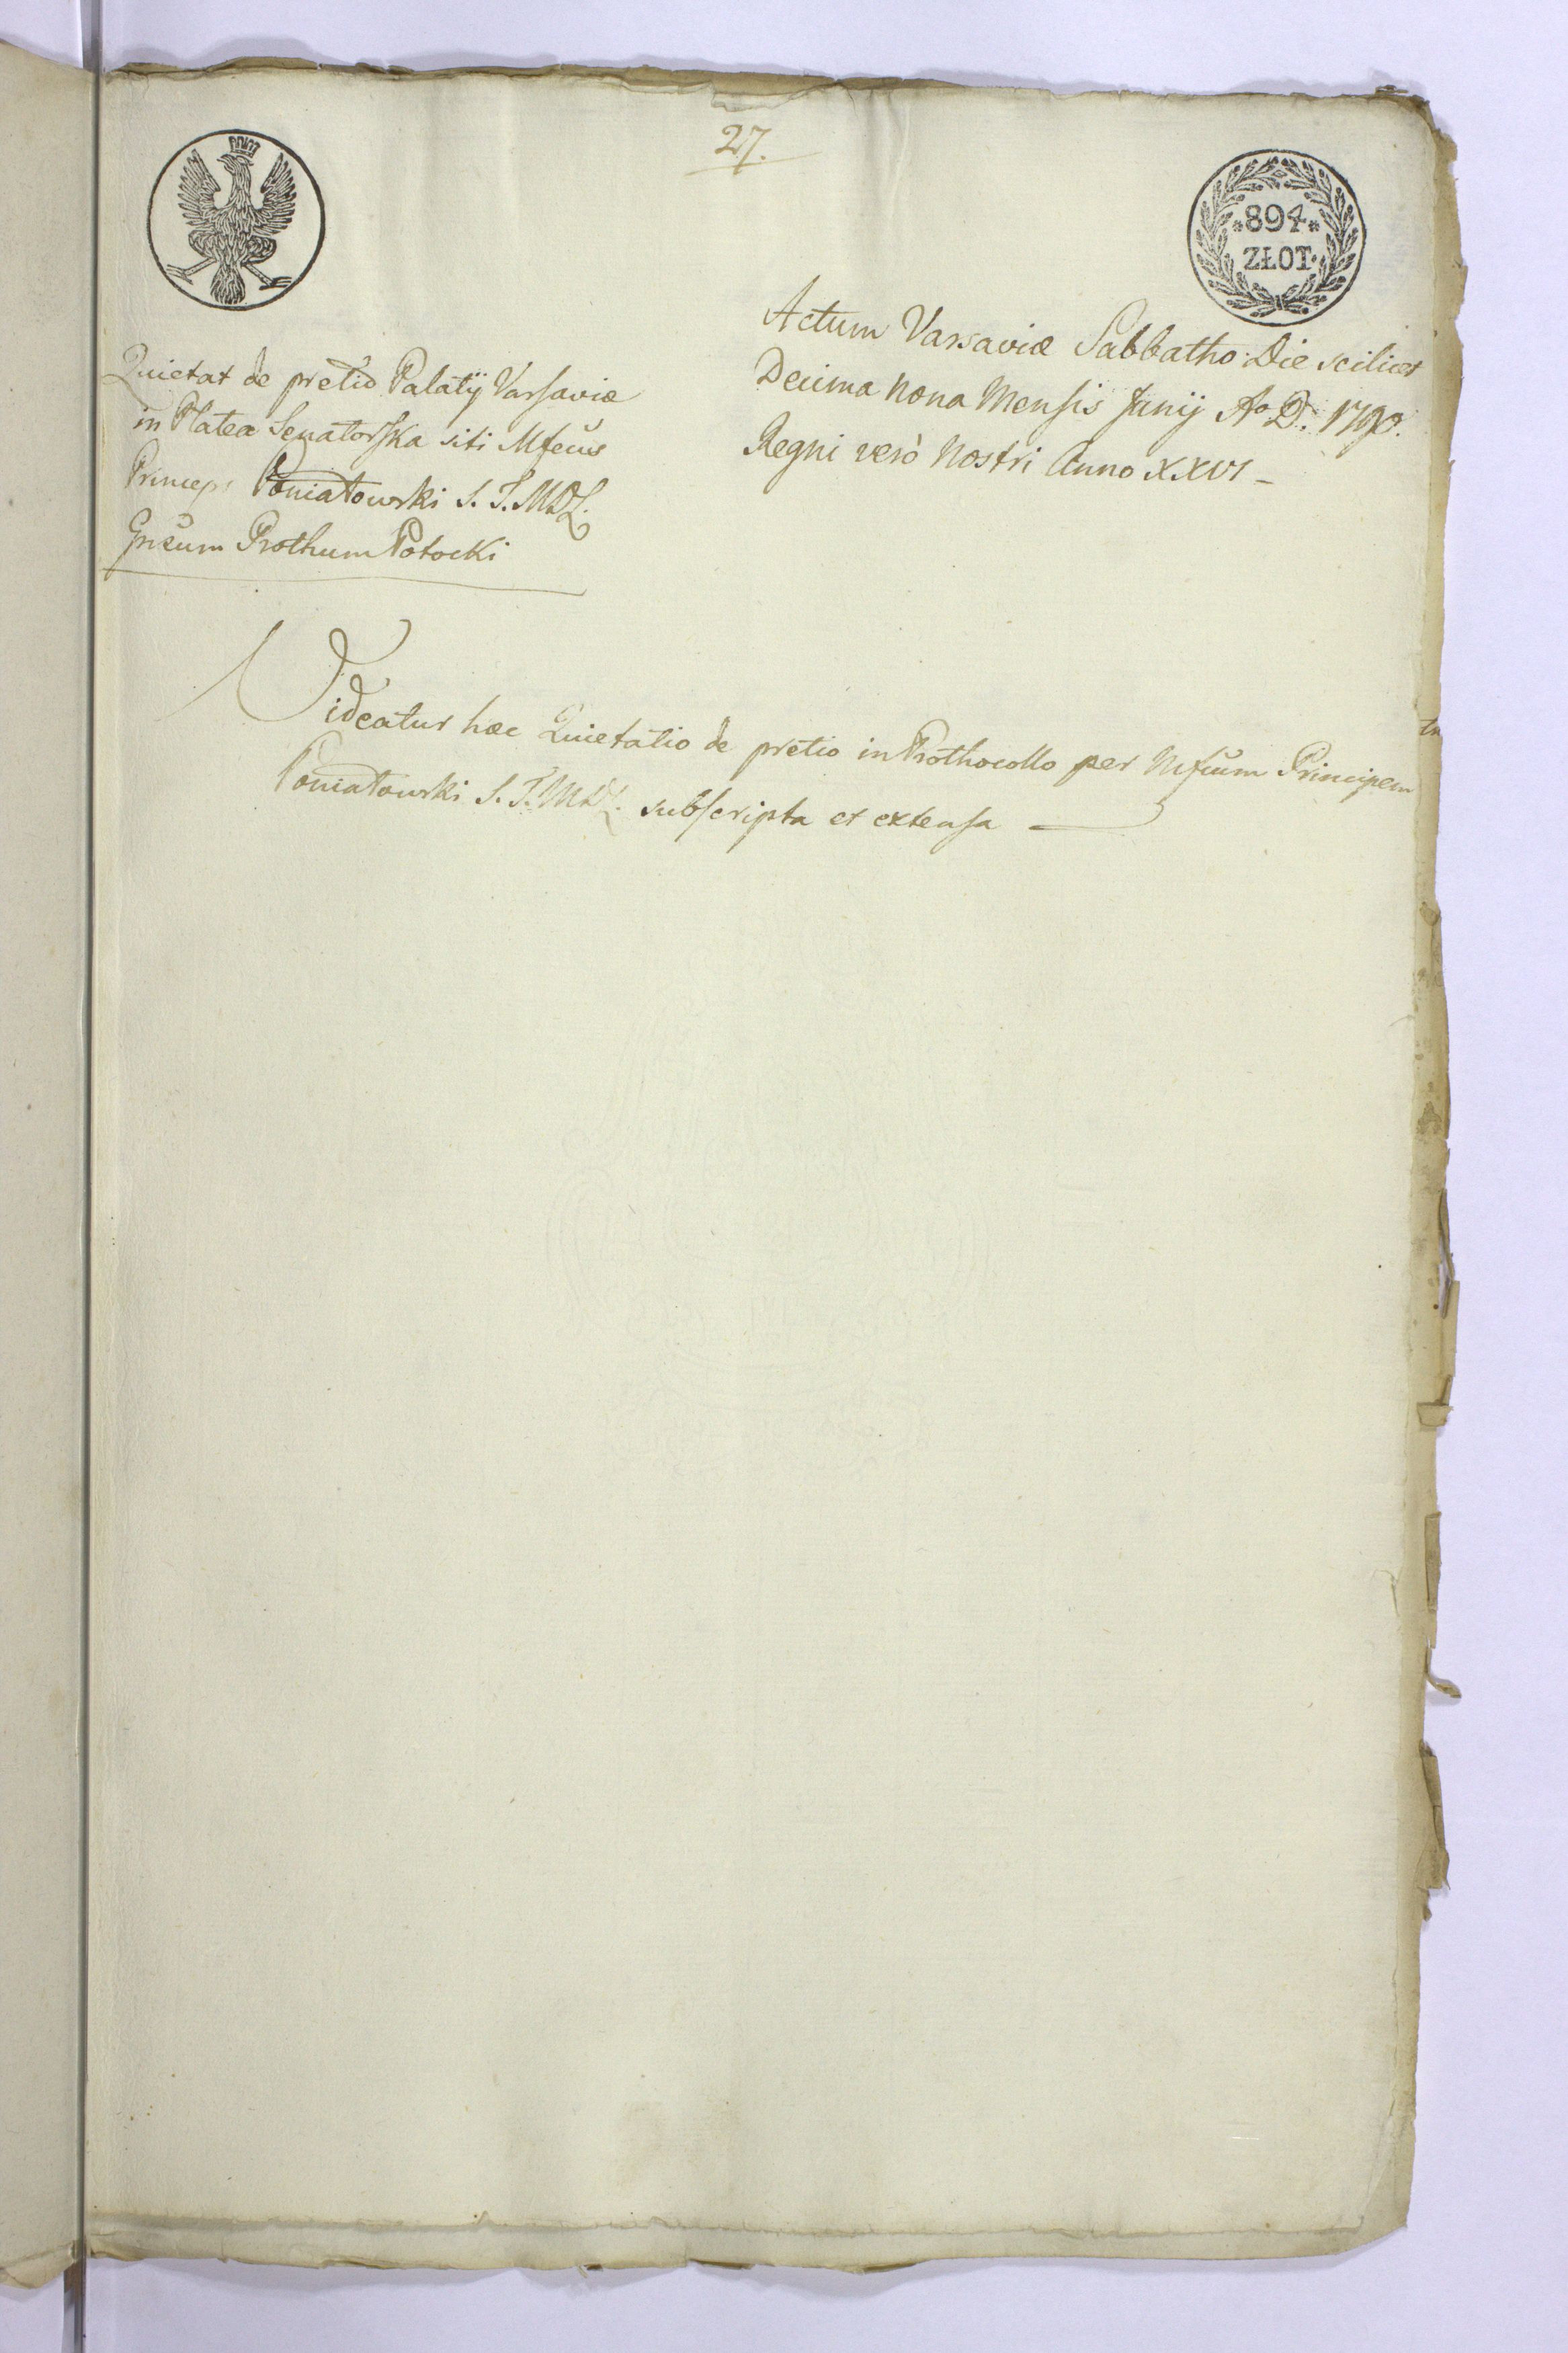 27.
894
ZŁOT
Actum Varsaviæ Sabbatho Die scilicet
Decima Nona Mensis Junij Ao D: 1790.
Regni verò Nostri Anno XXVI
Quietat de pretio Palatij Varsaviæ
in Platea Senatorska siti Mfcus
Princeps Poniatowski S. T. MDL.
Gnsum Prothum Potocki
Videatur hæc Quietatio de pretio in Prothocollo per Mfcum Principem
Poniatowski S. T. MDL. subscripta et extensa